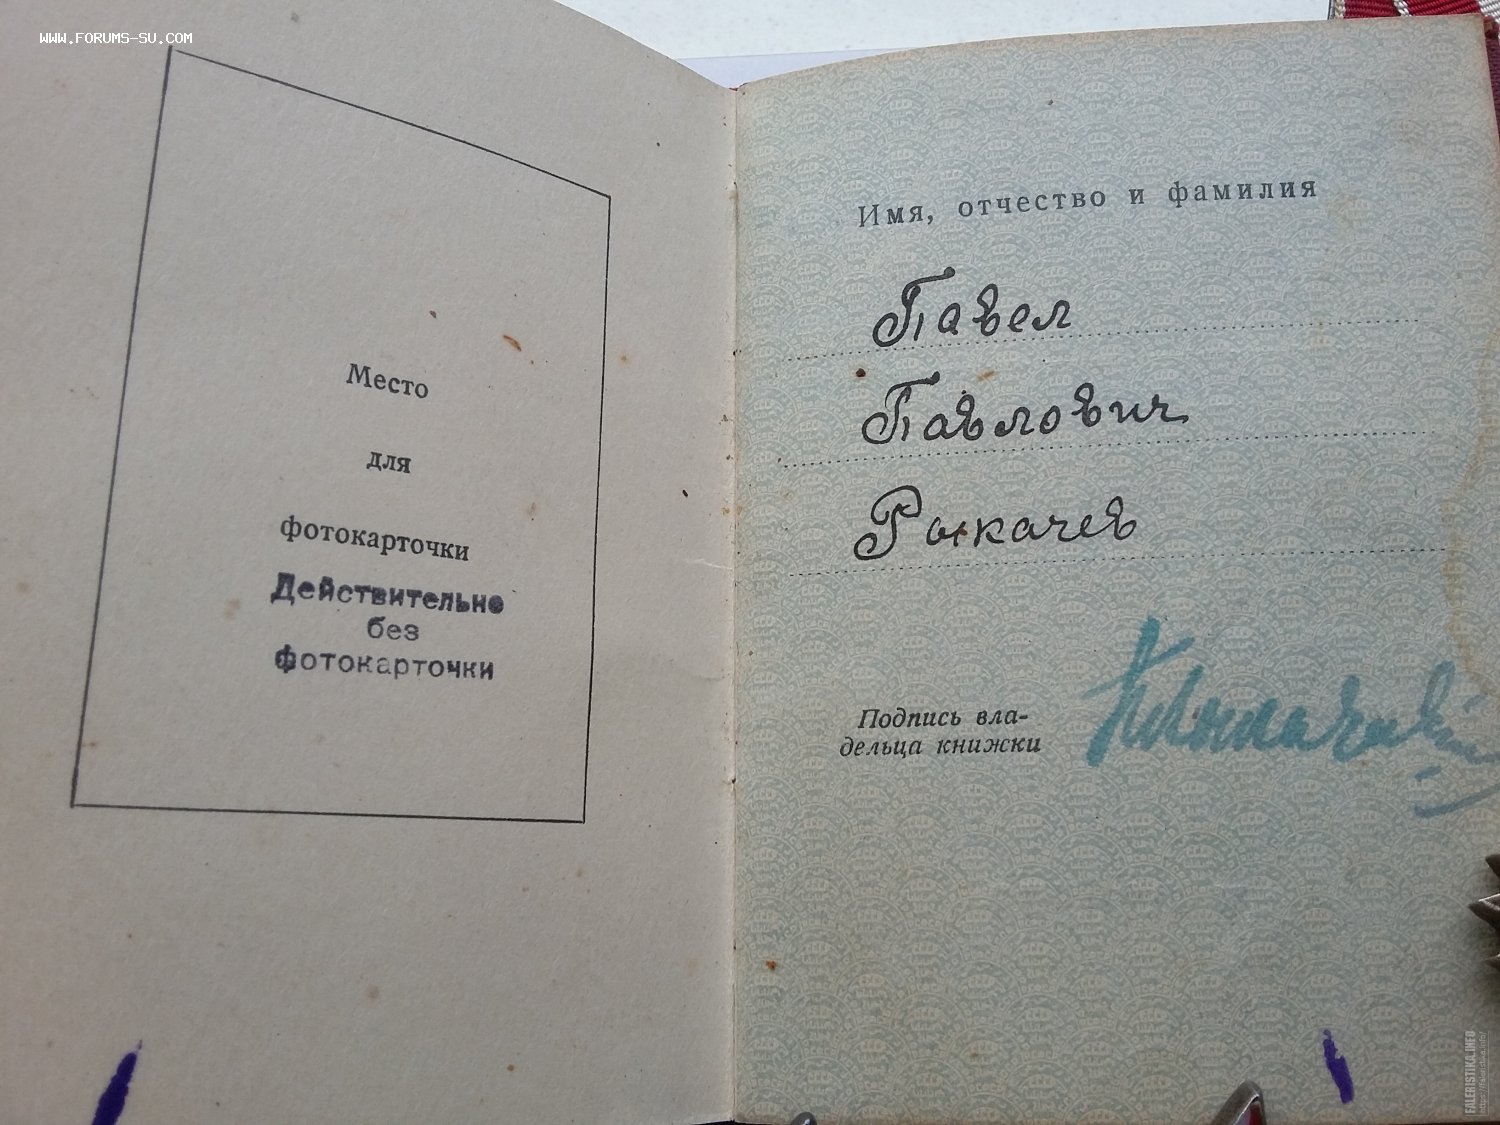 WWW.FORUMS-SU.COM
Место
для
фотокарточки
Действительно
без
фотокарточки
Имя, отчество и фамилия
Павел
Павлович
Рыкачев
Подпись вла-
дельца книжки
FALERISTIKA.INFO
https://faleristika.info/